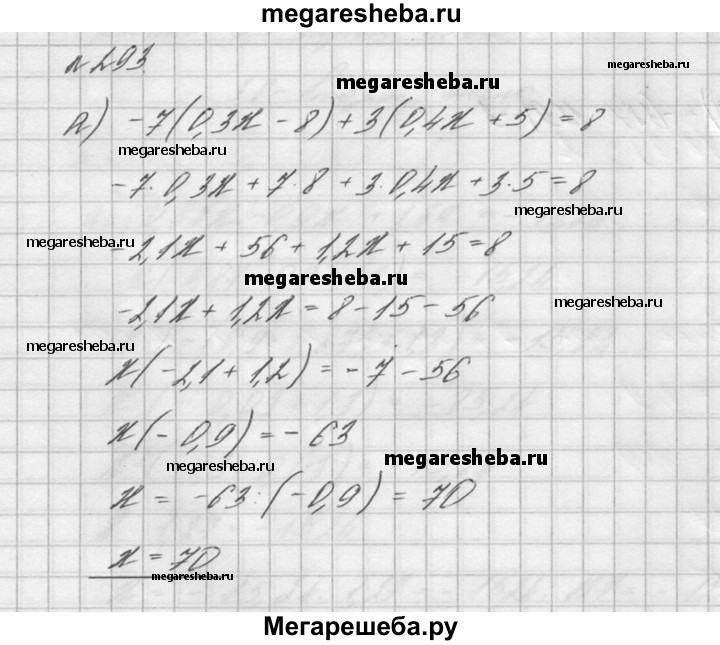 megaresheba.ru
№293
megaresheba.ru
megaresheba.ru
а) -7(0,3x - 8) + 3(0,4x + 5) = 8
megaresheba.ru
-7·0,3x + 7·8 + 3·0,4x + 3·5 = 8
megaresheba.ru
megaresheba.ru
-2,1x + 56 + 1,2x + 15 = 8
megaresheba.ru
megaresheba.ru
-2,1x + 1,2x = 8 - 15 - 56
megaresheba.ru
x(-2,1 + 1,2) = -7 - 56
x(-0,9) = -63
megaresheba.ru
megaresheba.ru
x = -63:(-0,9) = 70
x = 70
megaresheba.ru
Мегарешеба.ру